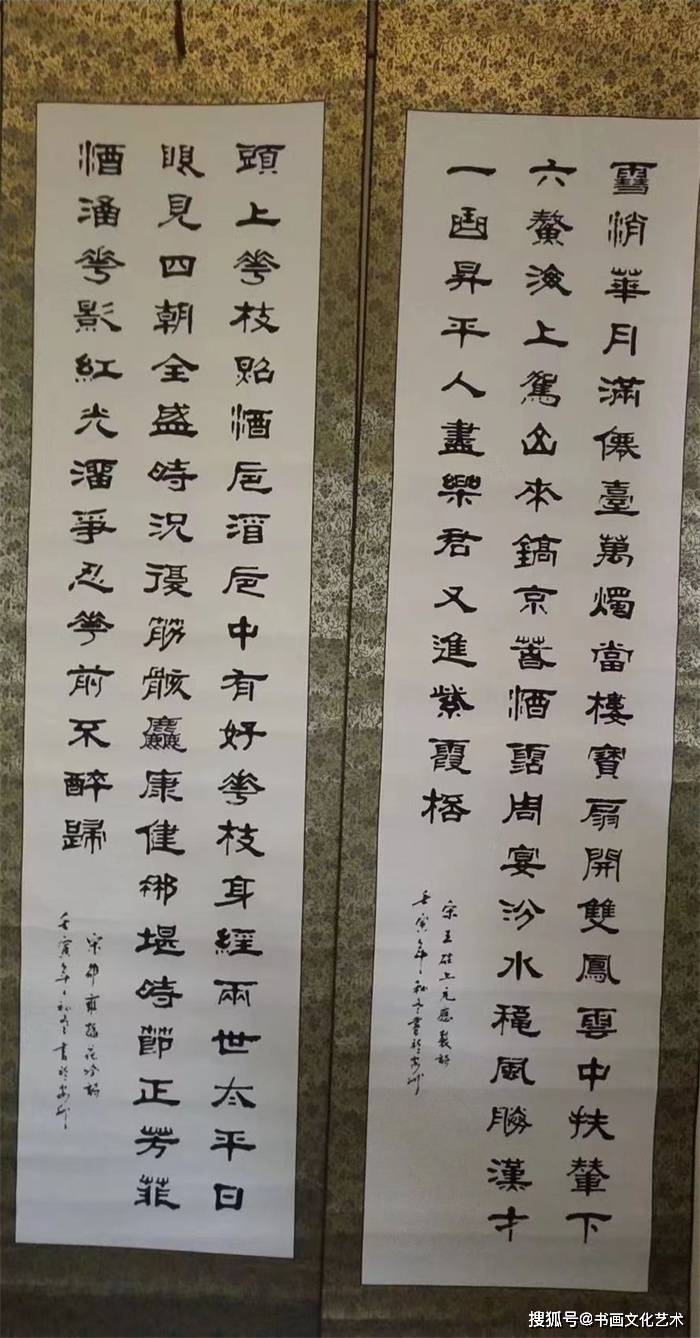 雪消華月滿僊臺萬燭當樓寶扇開雙鳳雲中扶輦下
六鰲海上駕山來鎬京春酒霑周宴汾水穐風陋漢才
一曲昇平人盡樂君又進紫霞桮
宋王珪上元應製詩
壬寅年初冬書於
頭上花枝照酒卮酒卮中有好花枝身經兩世太平日
眼見四朝全盛時況復筋骸麤康健那堪時節正芳菲
酒涵花影紅光溜爭忍花前不醉歸
宋邵雍插花吟詩
壬寅年初冬書於
搜狐号@书画文化艺术